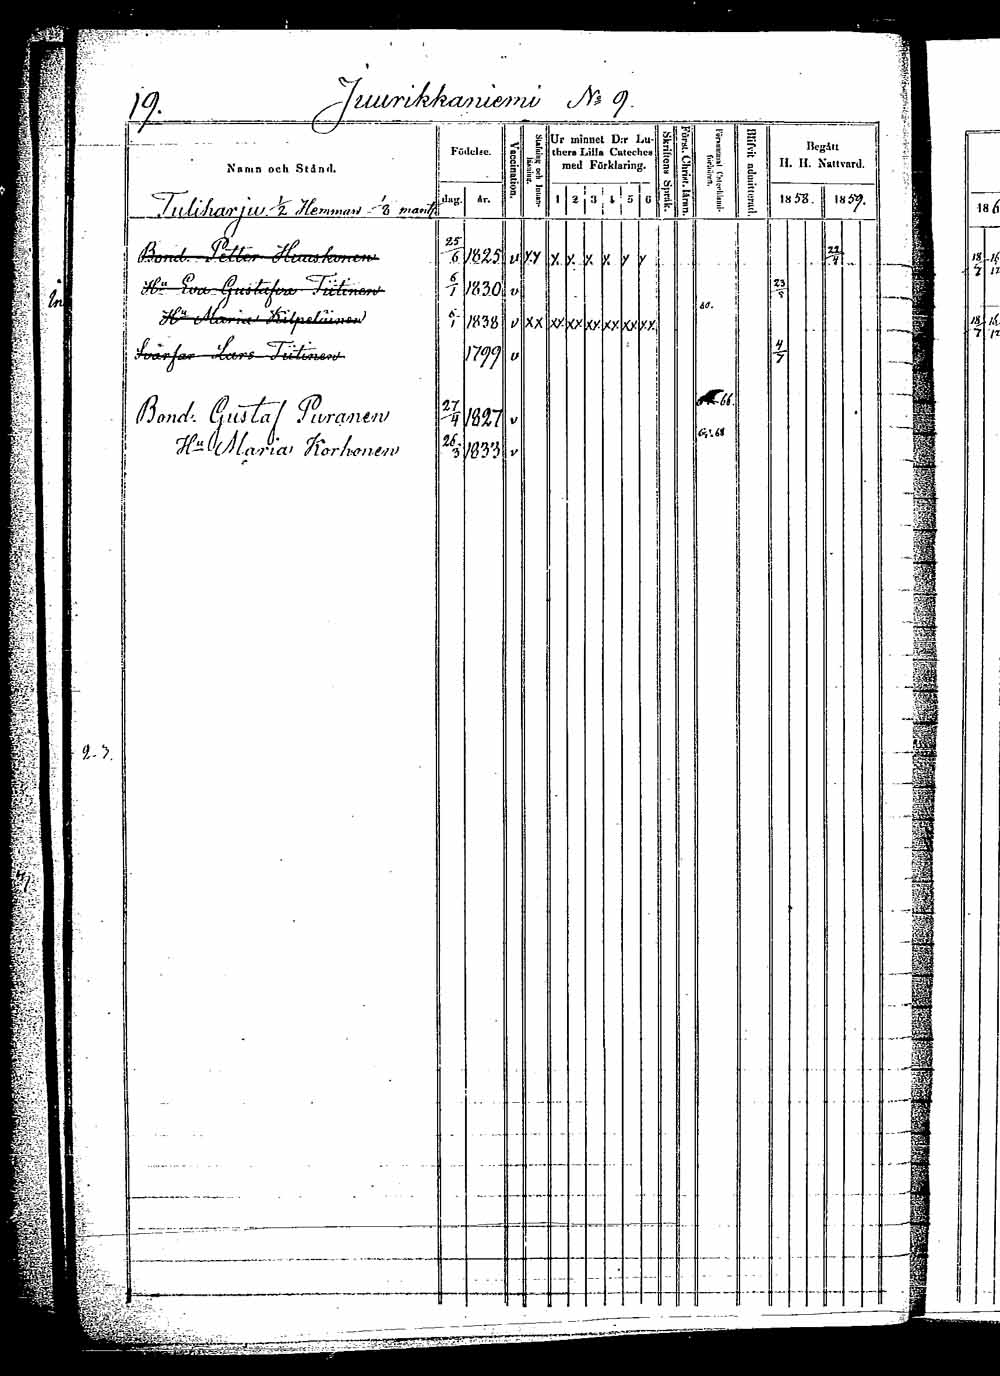 19. Juurikkaniemi No 9.
Namn och Stånd.
Födelse.
dag. år.
Vaccination.
Stafning och Innanläsning.
Ur minnet D:r Luthers Lilla Cateches med Förklaring.
1 2 3 4 5 6
Skriftens Språk.
Först. Christ. läran.
Blifvit admitterad.
Begått H. H. Nattvard.
1858. 1859.
186
Tuliharju 1/2 Hemman 1/8 mantl
Bond. Petter Haaskonen 25/6 1825 v x x x x x x y y 22/4
Hu Eva Gustafva Tiitinen 6/1 1830 v 23/5
Hu Maria Kilpeläinen 6/1 1838 v xx xx xx xx xx xx xx
Svärfar Lars Tiitinen 1799 v 4/7
Bond. Gustaf Puranen 27/4 1827 v 66.
Hu Maria Korhonen 26/3 1833 v 68
2-3.